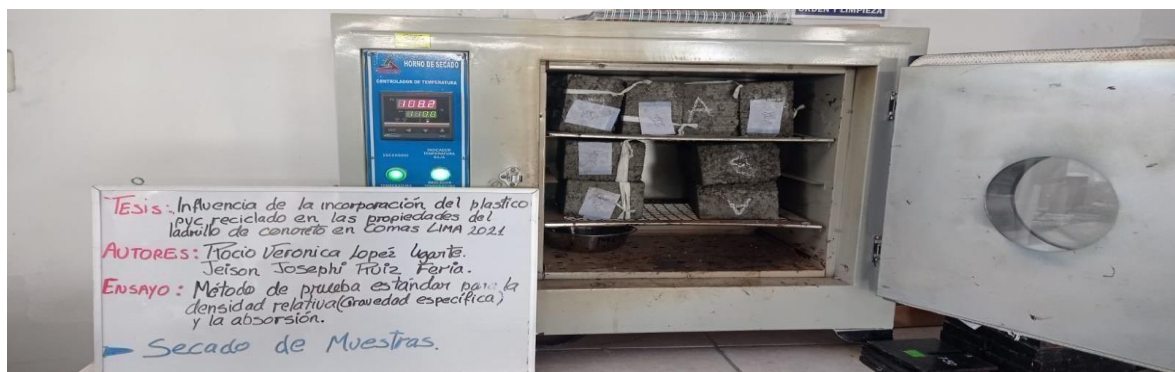 ORDEN Y LIMPIEZA
HORNO DE SECADO
CONTROLADOR DE TEMPERATURA
108.2
110.0
ENCENDIDO
INDICADOR
TEMPERATURA
BAJA
A
TESIS: Influencia de la incorporación del plastico
pvc reciclado en las propiedades del
ladrillo de concreto en Comas LIMA 2021
AUTORES: Rocio Veronica Lopez Ugarte.
Jeison Josephi Ruiz Feria.
ENSAYO: Método de prueba estándar para la
densidad relativa (Gravedad específica)
y la absorsión.
Secado de Muestras.